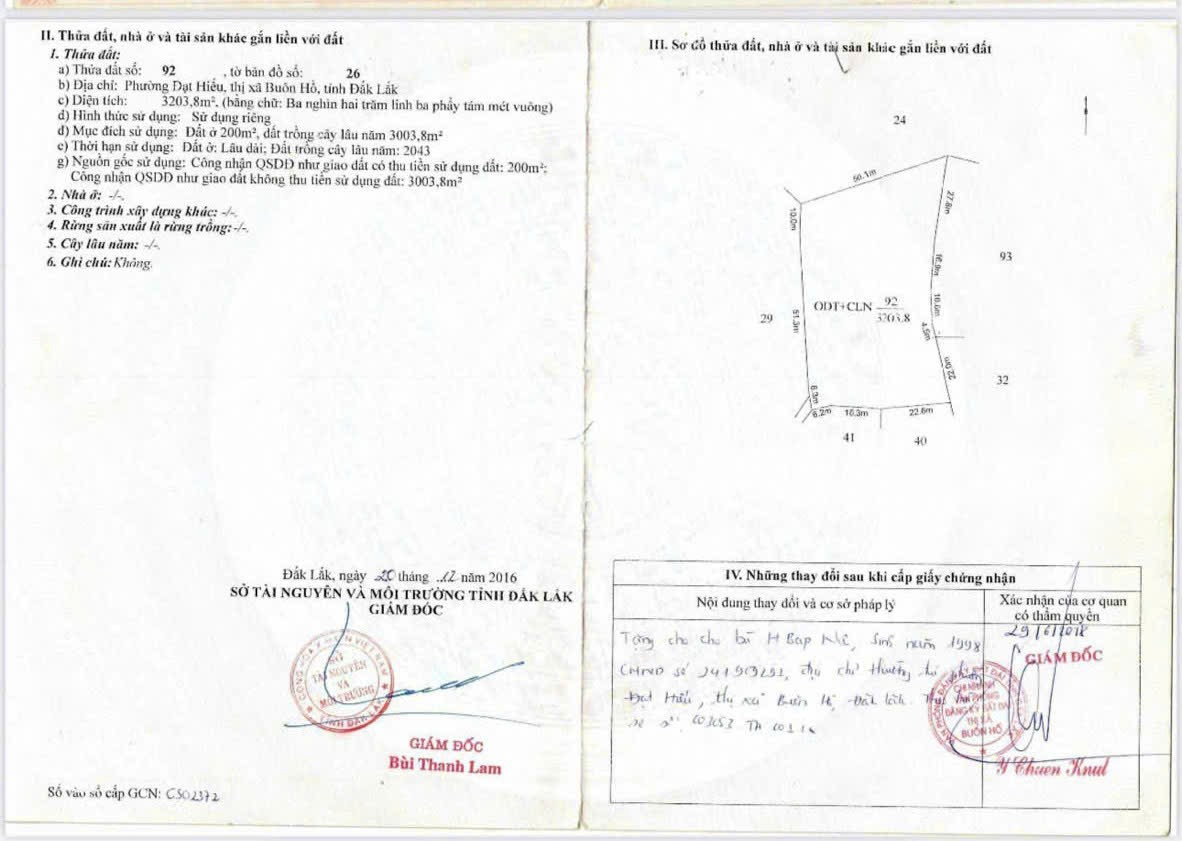 II. Thửa đất, nhà ở và tài sản khác gắn liền với đất
1. Thửa đất:
a) Thửa đất số: 92 , tờ bản đồ số: 26
b) Địa chỉ: Phường Đạt Hiếu, thị xã Buôn Hồ, tỉnh Đắk Lắk
c) Diện tích: 3203,8m², (bằng chữ: Ba nghìn hai trăm linh ba phẩy tám mét vuông)
d) Hình thức sử dụng: Sử dụng riêng
đ) Mục đích sử dụng: Đất ở 200m², đất trồng cây lâu năm 3003,8m²
e) Thời hạn sử dụng: Đất ở: Lâu dài; Đất trồng cây lâu năm: 2043
g) Nguồn gốc sử dụng: Công nhận QSDĐ như giao đất có thu tiền sử dụng đất: 200m²;
Công nhận QSDĐ như giao đất không thu tiền sử dụng đất: 3003,8m²
2. Nhà ở: -/-.
3. Công trình xây dựng khác: -/-.
4. Rừng sản xuất là rừng trồng: -/-.
5. Cây lâu năm: -/-.
6. Ghi chú: Không.
Đắk Lắk, ngày 20 tháng 12 năm 2016
SỞ TÀI NGUYÊN VÀ MÔI TRƯỜNG TỈNH ĐẮK LẮK
GIÁM ĐỐC
SỞ
TÀI NGUYÊN
VÀ
MÔI TRƯỜNG
TỈNH ĐẮK LẮK
GIÁM ĐỐC
Bùi Thanh Lam
Số vào sổ cấp GCN: CS02372
III. Sơ đồ thửa đất, nhà ở và tài sản khác gắn liền với đất
24
50.1m
27.8m
10.0m
16.9m
93
ODT+CLN 92
3203.8
10.6m
29
51.3m
4.5m
22.0m
32
6.3m
6.2m
16.3m
22.6m
41
40
IV. Những thay đổi sau khi cấp giấy chứng nhận
Nội dung thay đổi và cơ sở pháp lý
Xác nhận của cơ quan
có thẩm quyền
Tặng cho cho bà H Bap Niê, Sinh năm 1998
CMND số địa chỉ thường trú
Đạt Hiếu, thị xã Buôn Hồ, Đắk Lắk.
29/6/2018
GIÁM ĐỐC
CHI NHÁNH
VĂN PHÒNG
ĐĂNG KÝ ĐẤT ĐAI
THỊ XÃ
BUÔN HỒ
Y Chuen Knul